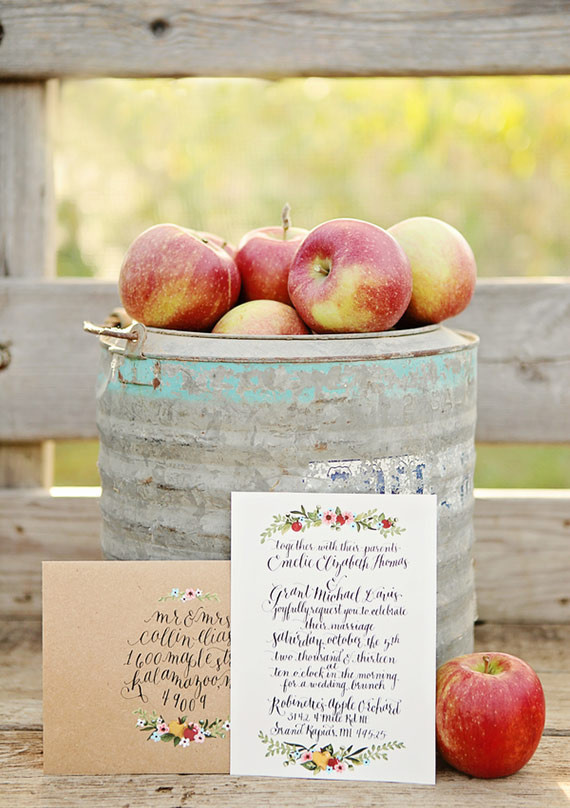 mr & mrs
collin elias
1600 maple st
kalamazoo, m
49009
together with their parents
Emelie Elizabeth Thomas
&
Grant Michael Lewis
joyfully request you to celebrate
their marriage
saturday, october the 5th
two thousand & thirteen
at
ten o'clock in the morning
for a wedding brunch
Robinette's Apple Orchard
3142 4 Mile Rd NE
Grand Rapids, MI 49525